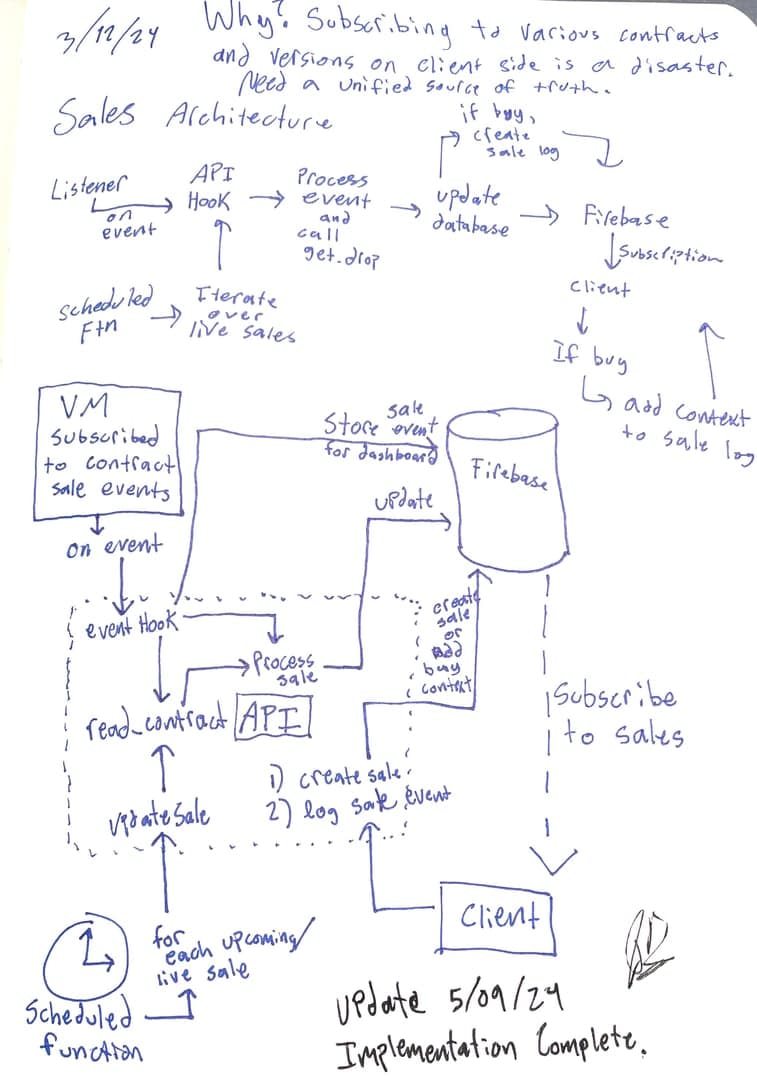 3/12/24
Why? Subscribing to various contracts
and versions on client side is a disaster.
Need a unified source of truth.
Sales Architecture
if buy,
create
sale log
Listener
on
event
API
Hook
Process
event
and
call
get_drop
update
database
Firebase
Subscription
Client
If buy
add context
to sale log
Scheduled
Ftn
Iterate
over
live sales
VM
Subscribed
to contract
sale events
on event
Store sale event
for dashboard
Firebase
update
event Hook
Process
sale
read_contract
API
Update Sale
create
sale
or
add
buy
context
1) create sale.
2) log sale event
Subscribe
to sales
Client
for
each upcoming/
live sale
Scheduled
function
Update 5/09/24
Implementation Complete.